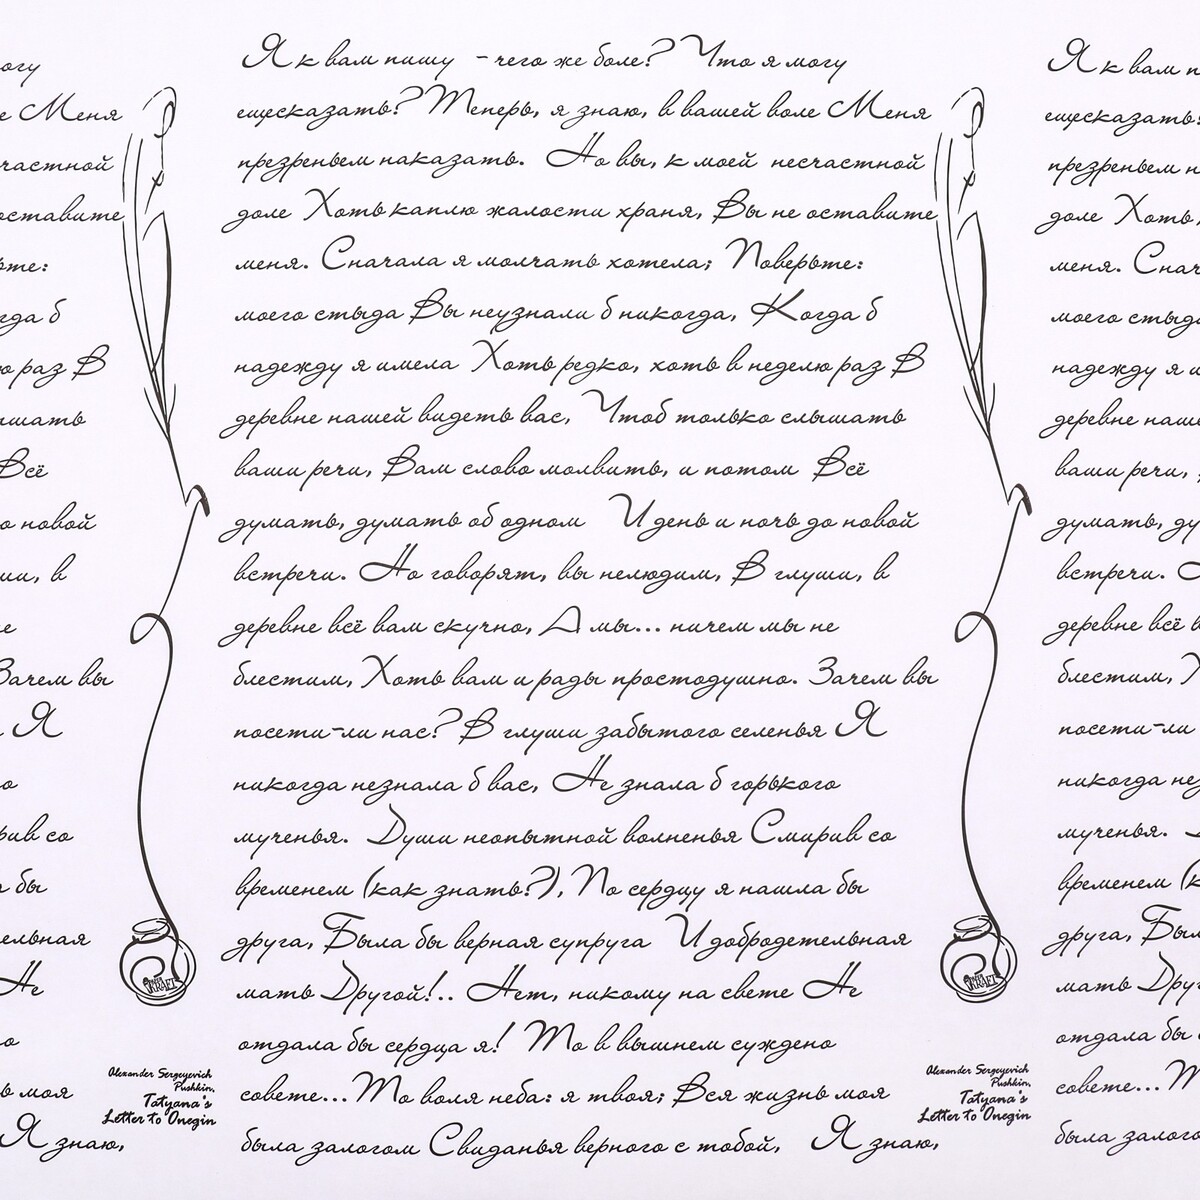 Я к вам пишу - чего же боле? Что я могу
ещесказать? Теперь, я знаю, в вашей воле Меня
презреньем наказать. Но вы, к моей несчастной
доле Хоть каплю жалости храня, Вы не оставите
меня. Сначала я молчать хотела; Поверьте:
моего стыда Вы неузнали б никогда, Когда б
надежду я имела Хоть редко, хоть в неделю раз В
деревне нашей видеть вас, Чтоб только слышать
ваши речи, Вам слово молвить, и потом Всё
думать, думать об одном И день и ночь до новой
встречи. Но говорят, вы нелюдим, В глуши, в
деревне всё вам скучно, А мы... ничем мы не
блестим, Хоть вам и рады простодушно. Зачем вы
посети-ли нас? В глуши забытого селенья Я
никогда незнала б вас, Не знала б горького
мученья. Души неопытной волненья Смирив со
временем (как знать?), По сердцу я нашла бы
друга, Была бы верная супруга И добродетельная
мать Другой!.. Нет, никому на свете Не
отдала бы сердца я! То в вышнем суждено
совете... То воля неба: я твоя; Вся жизнь моя
была залогом Свиданья верного с тобой, Я знаю,
Alexander Sergeyevich
Pushkin.
Tatyana's
Letter to Onegin
огу
е Меня
частной
оставите
ьте:
гда б
ю раз В
ышать
Всё
о новой
ши, в
е
Зачем вы
Я
о
рив со
а бы
ельная
Не
о
ь моя
Я знаю,
Alexander Sergeyevich
Pushkin.
Tatyana's
Letter to Onegin
Я к вам п
ещесказать?
презреньем н
доле Хоть
меня. Снач
моего стыда
надежду я и
деревне наше
ваши речи,
думать, ду
встречи.
деревне всё в
блестим,
посети-ли
никогда не
мученья.
временем (к
друга, Был
мать Друг
отдала бы
совете...
была залого